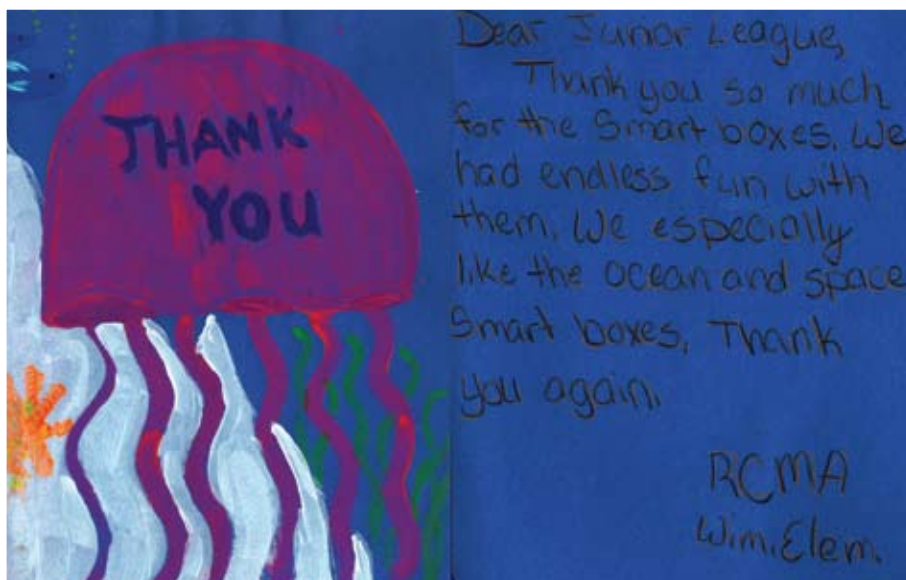 THANK
YOU
Dear Junior League,
Thank you so much
for the Smart boxes. We
had endless fun with
them. We especially
like the ocean and space
Smart boxes. Thank
you again.
RCMA
Wim. Elem.